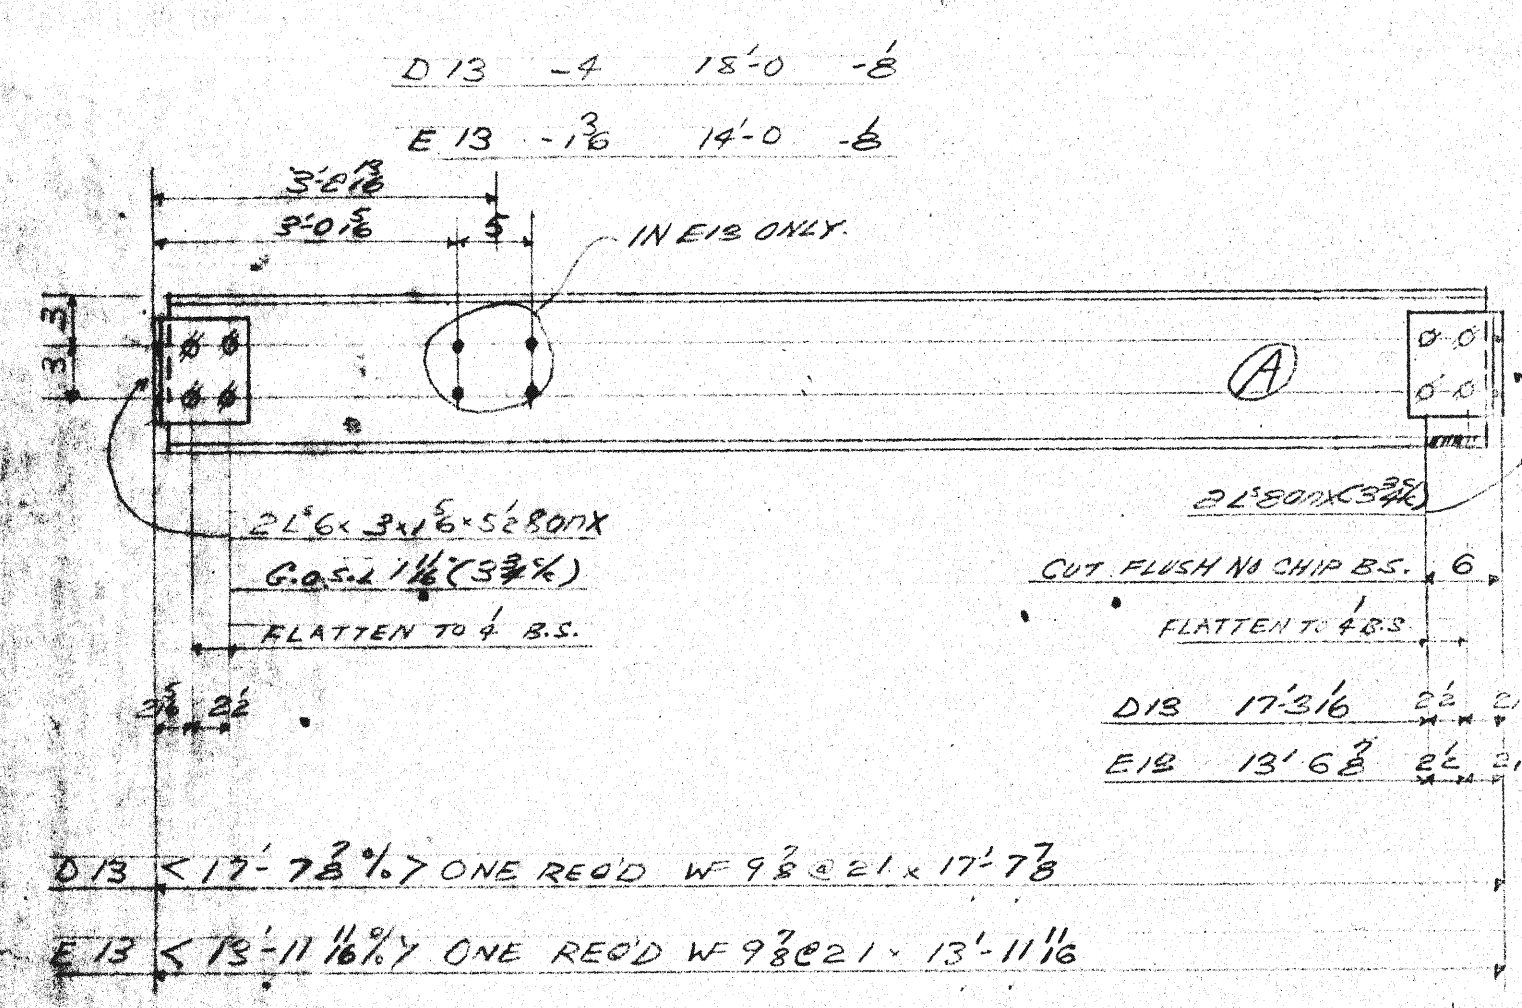 D 13 -4 18'-0 -1/8
E 13 -1 3/16 14'-0 -1/8
3'-2 13/16
3'-0 5/16 5 IN E13 ONLY.
3
3
A
2 Ls 6 x 3 x 5/16 x 5 1/2
G.O.S.L 1 11/16 (3 3/4 c/c)
FLATTEN TO 1/4 B.S.
2 5/16 2 1/2
(3 3/4 c/c)
CUT FLUSH NO CHIP B.S. 6
FLATTEN TO 1/4 B.S
D13 17'-3 1/16 2 1/2
E13 13' 6 7/8 2 1/2
D 13 < 17'-7 7/8 o/o > ONE REQ'D WF 9 7/8 @ 21 x 17'-7 7/8
E 13 < 13'-11 11/16 o/o > ONE REQ'D WF 9 7/8 @ 21 x 13'-11 11/16